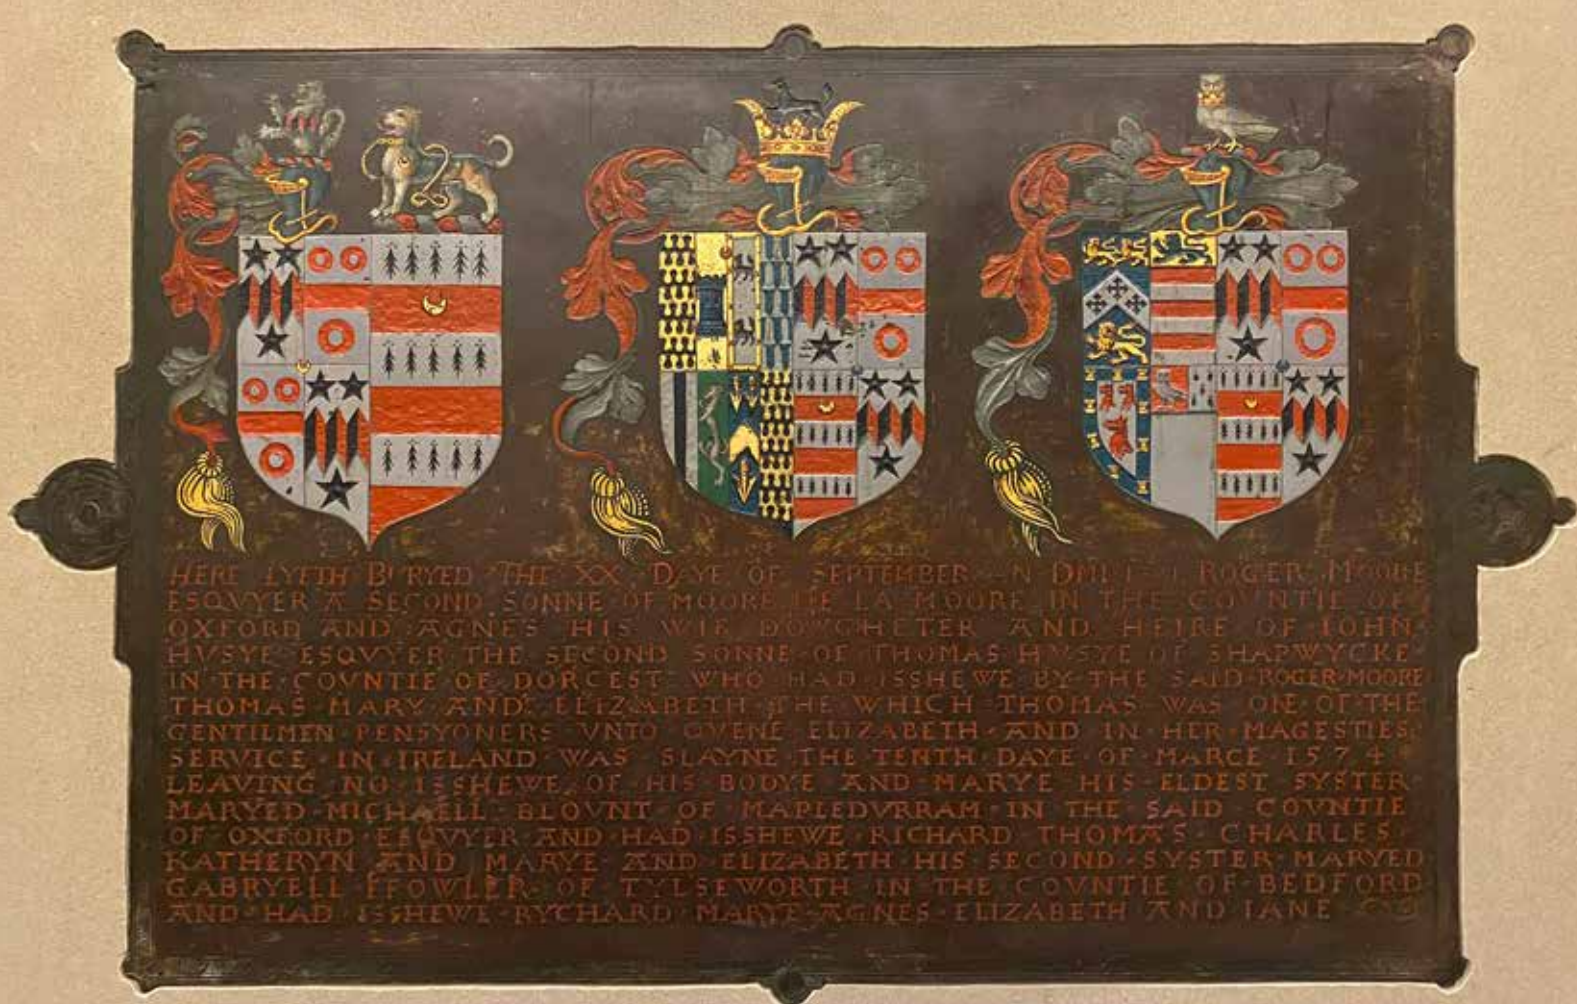 HERE LYETH BVRYED THE XX DAYE OF SEPTEMBER ROGER MOORE
ESQVYER A SECOND SONNE OF MOORE DE LA MOORE IN THE COVNTIE OF
OXFORD AND AGNES HIS WIF DOVGHTER AND HEIRE OF IOHN
HVSYE ESQVYER THE SECOND SONNE OF THOMAS HVSYE OF SHAPWYCKE
IN THE COVNTIE OF DORCEST WHO HAD ISSHEWE BY THE SAID ROGER MOORE
THOMAS MARY AND ELIZABETH THE WHICH THOMAS WAS ONE OF THE
GENTILMEN PENSYONERS VNTO QVENE ELIZABETH AND IN HER MAGESTIES
SERVICE IN IRELAND WAS SLAYNE THE TENTH DAYE OF MARCE 1574
LEAVING NO ISSHEWE OF HIS BODYE AND MARYE HIS ELDEST SYSTER
MARYED MICHAELL BLOVNT OF MAPLEDVRRAM IN THE SAID COVNTIE
OF OXFORD ESQVYER AND HAD ISSHEWE RICHARD THOMAS CHARLES
KATHERYN AND MARYE AND ELIZABETH HIS SECOND SYSTER MARYED
GABRYELL FFOWLER OF TYLSEWORTH IN THE COVNTIE OF BEDFORD
AND HAD ISSHEWE RYCHARD MARYE AGNES ELIZABETH AND IANE